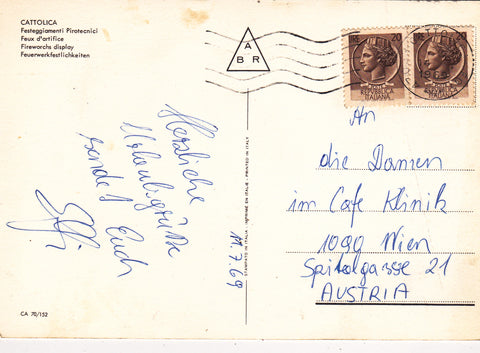 CATTOLICA
Festeggiamenti Pirotecnici
Feux d'artifice
Fireworchs display
Feuerwerkfestlichkeiten
A
B R
20 20
Herzliche
Urlaubsgrüße
sendet Euch
11.7.69
STAMPATO IN ITALY - IMPRIMÉ EN ITALIE - PRINTED IN ITALY
An
die Damen
im Cafe Klinik
1090 Wien
Spitalgasse 21
AUSTRIA
CA 70/152